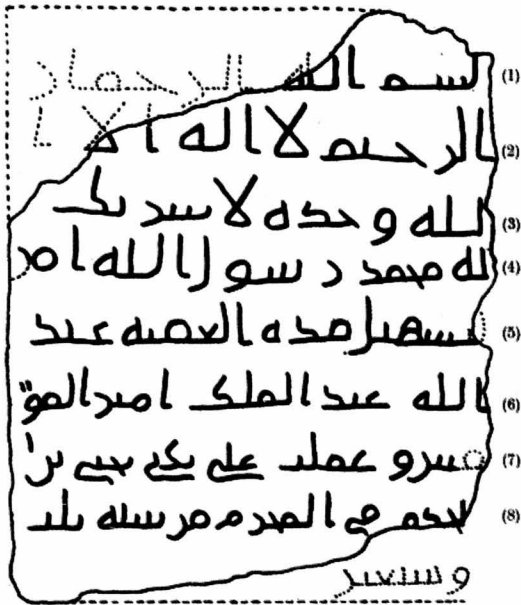 بسم الله الرحمن (1)
الرحيم لا اله الا ا (2)
لله وحده لا شريك (3)
له محمد رسول الله امر (4)
بتسهيل هذه العقبه عبد (5)
الله عبد الملك امير المؤ (6)
منين وعملت على يدي يحيى بن ا (7)
لحكم في المحرم من سنه ثلث (8)
وسبعين